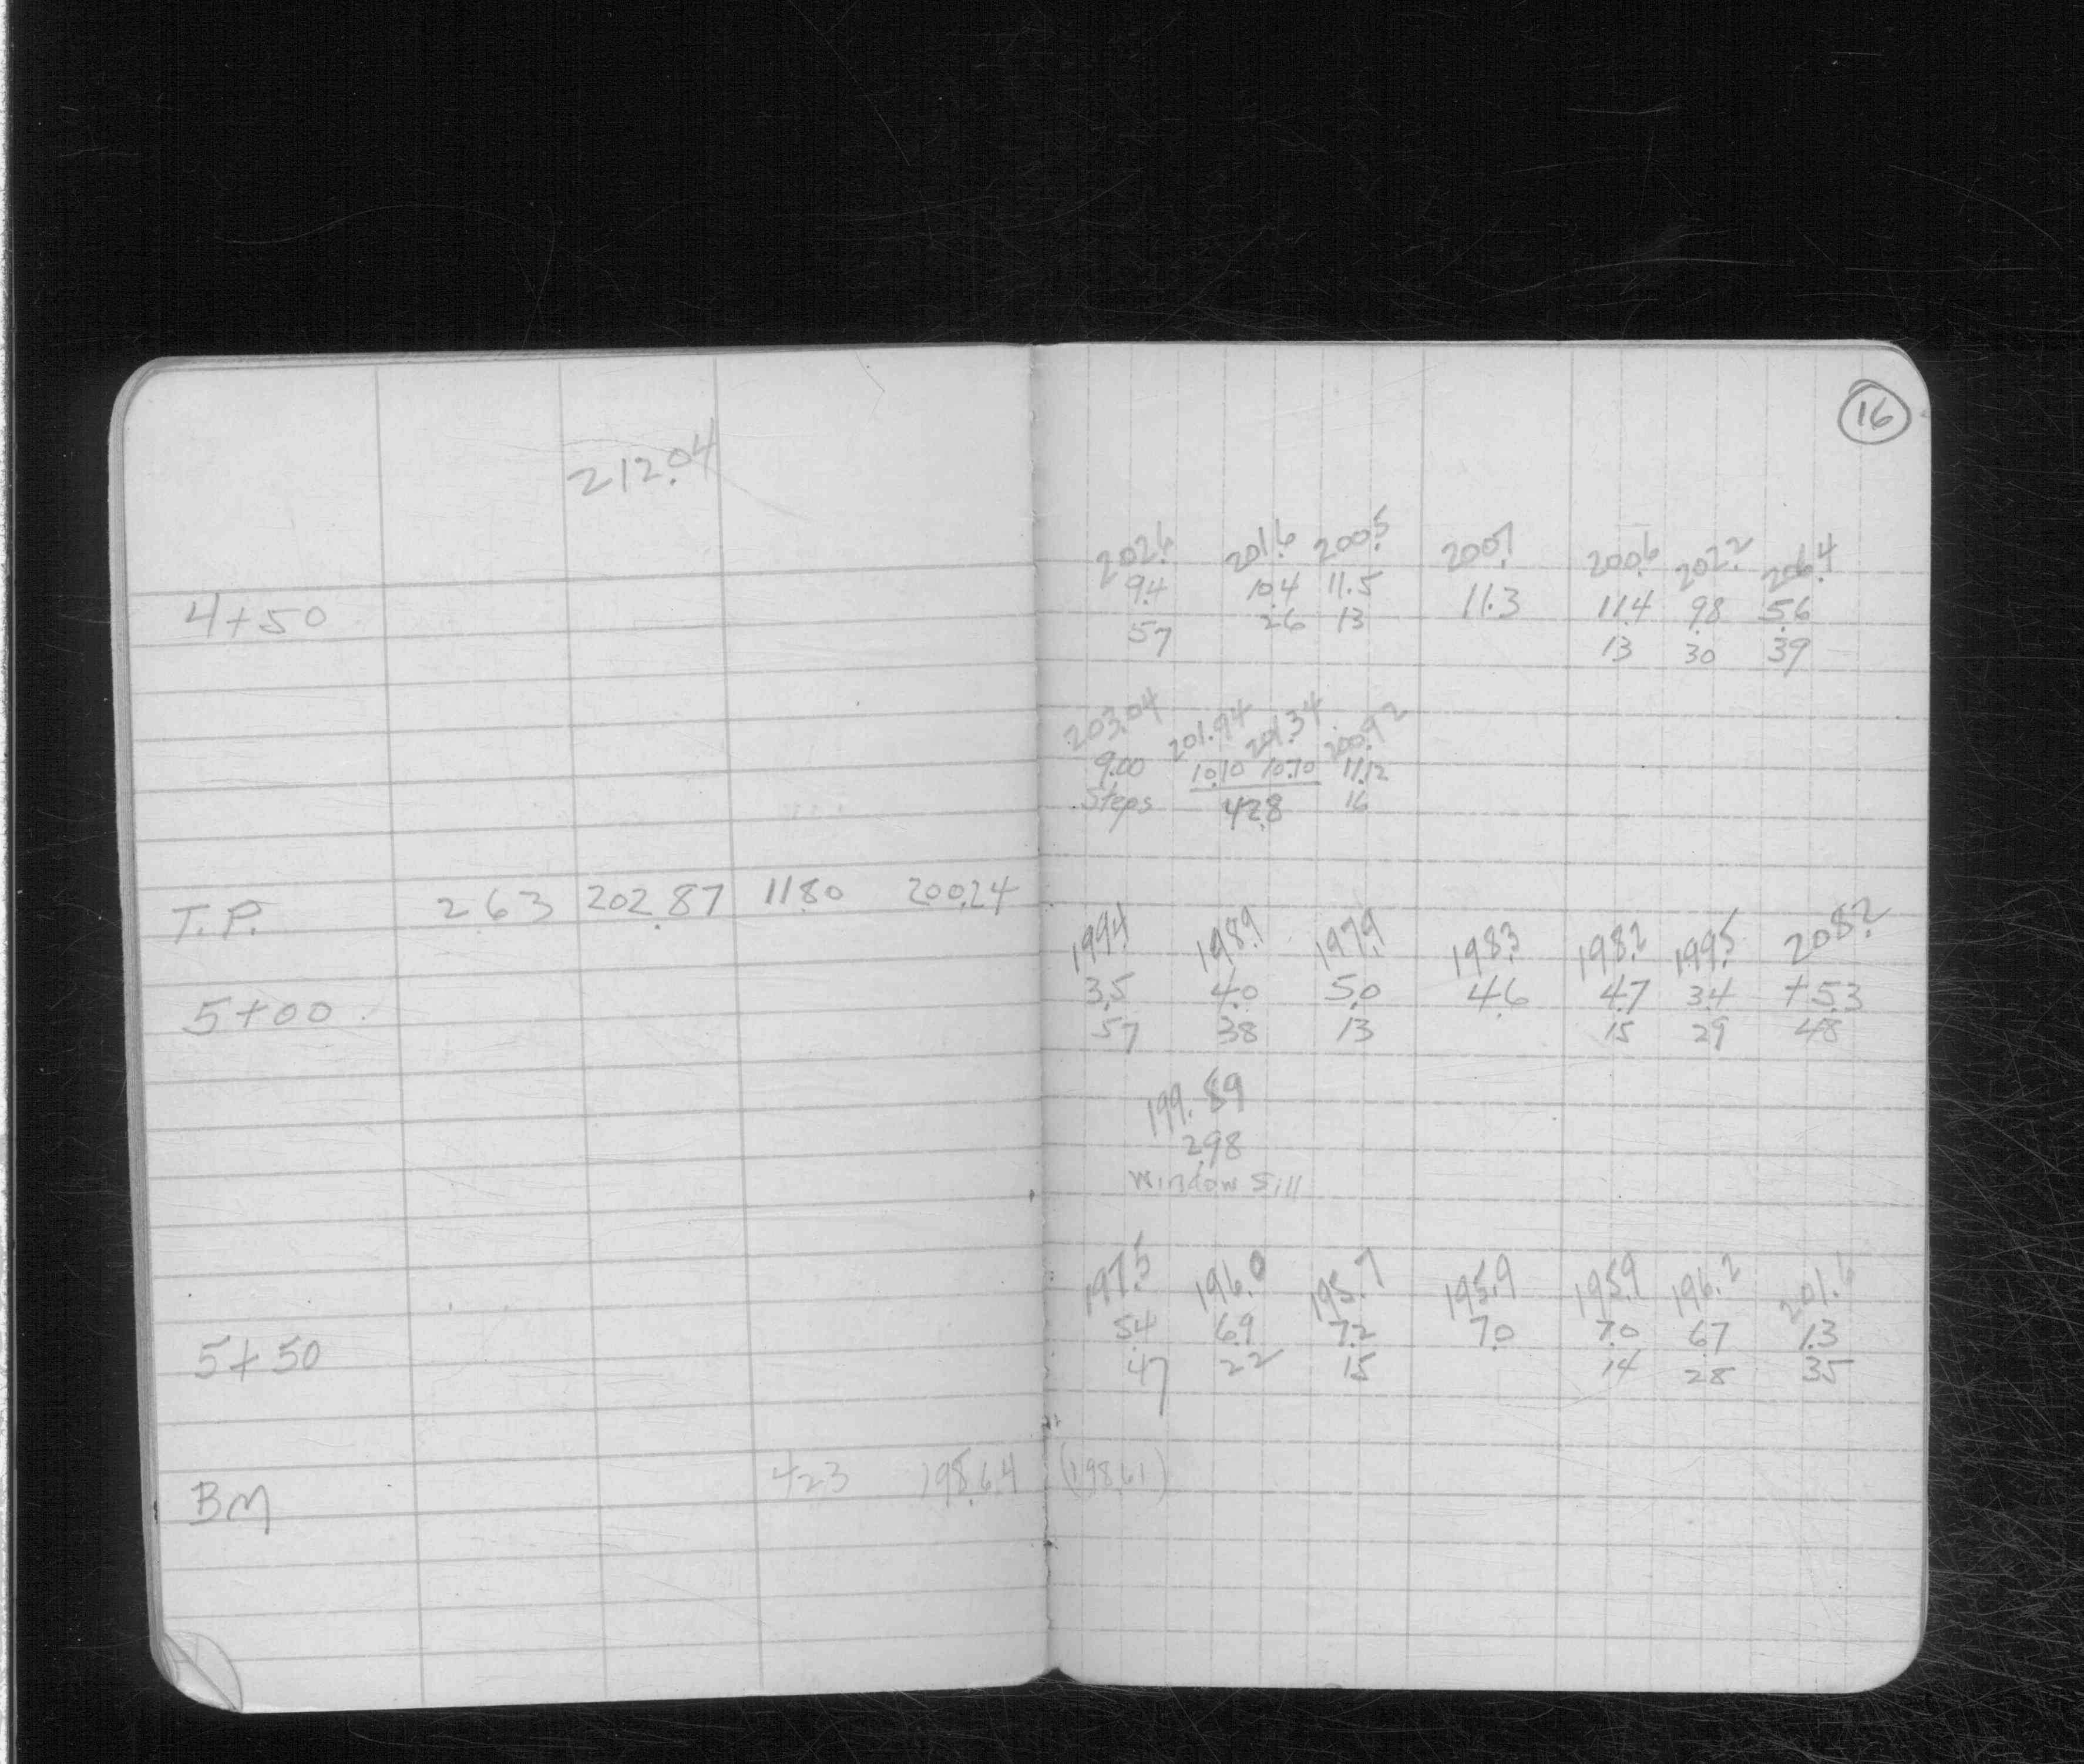 16
212.04
202.6 201.6 200.5 200.7 200.6 202.2 206.4
4+50 9.4 10.4 11.5 11.3 11.4 9.8 5.6
57 26 13 13 30 39
203.04 201.94 201.34 200.92
9.00 10.10 10.70 11.12
Steps 42.8 16
T.P. 2.63 202.87 11.80 200.24
199.4 198.9 197.9 198.3 198.2 199.5 208.2
5+00 3.5 4.0 5.0 4.6 4.7 3.4 +5.3
57 38 13 15 29 48
199.89
2.98
Window Sill
197.5 196.0 195.7 195.9 195.9 196.2 201.6
5.4 6.9 7.2 7.0 7.0 6.7 1.3
5+50 47 22 15 14 28 35
BM 4.23 198.64 (198.61)